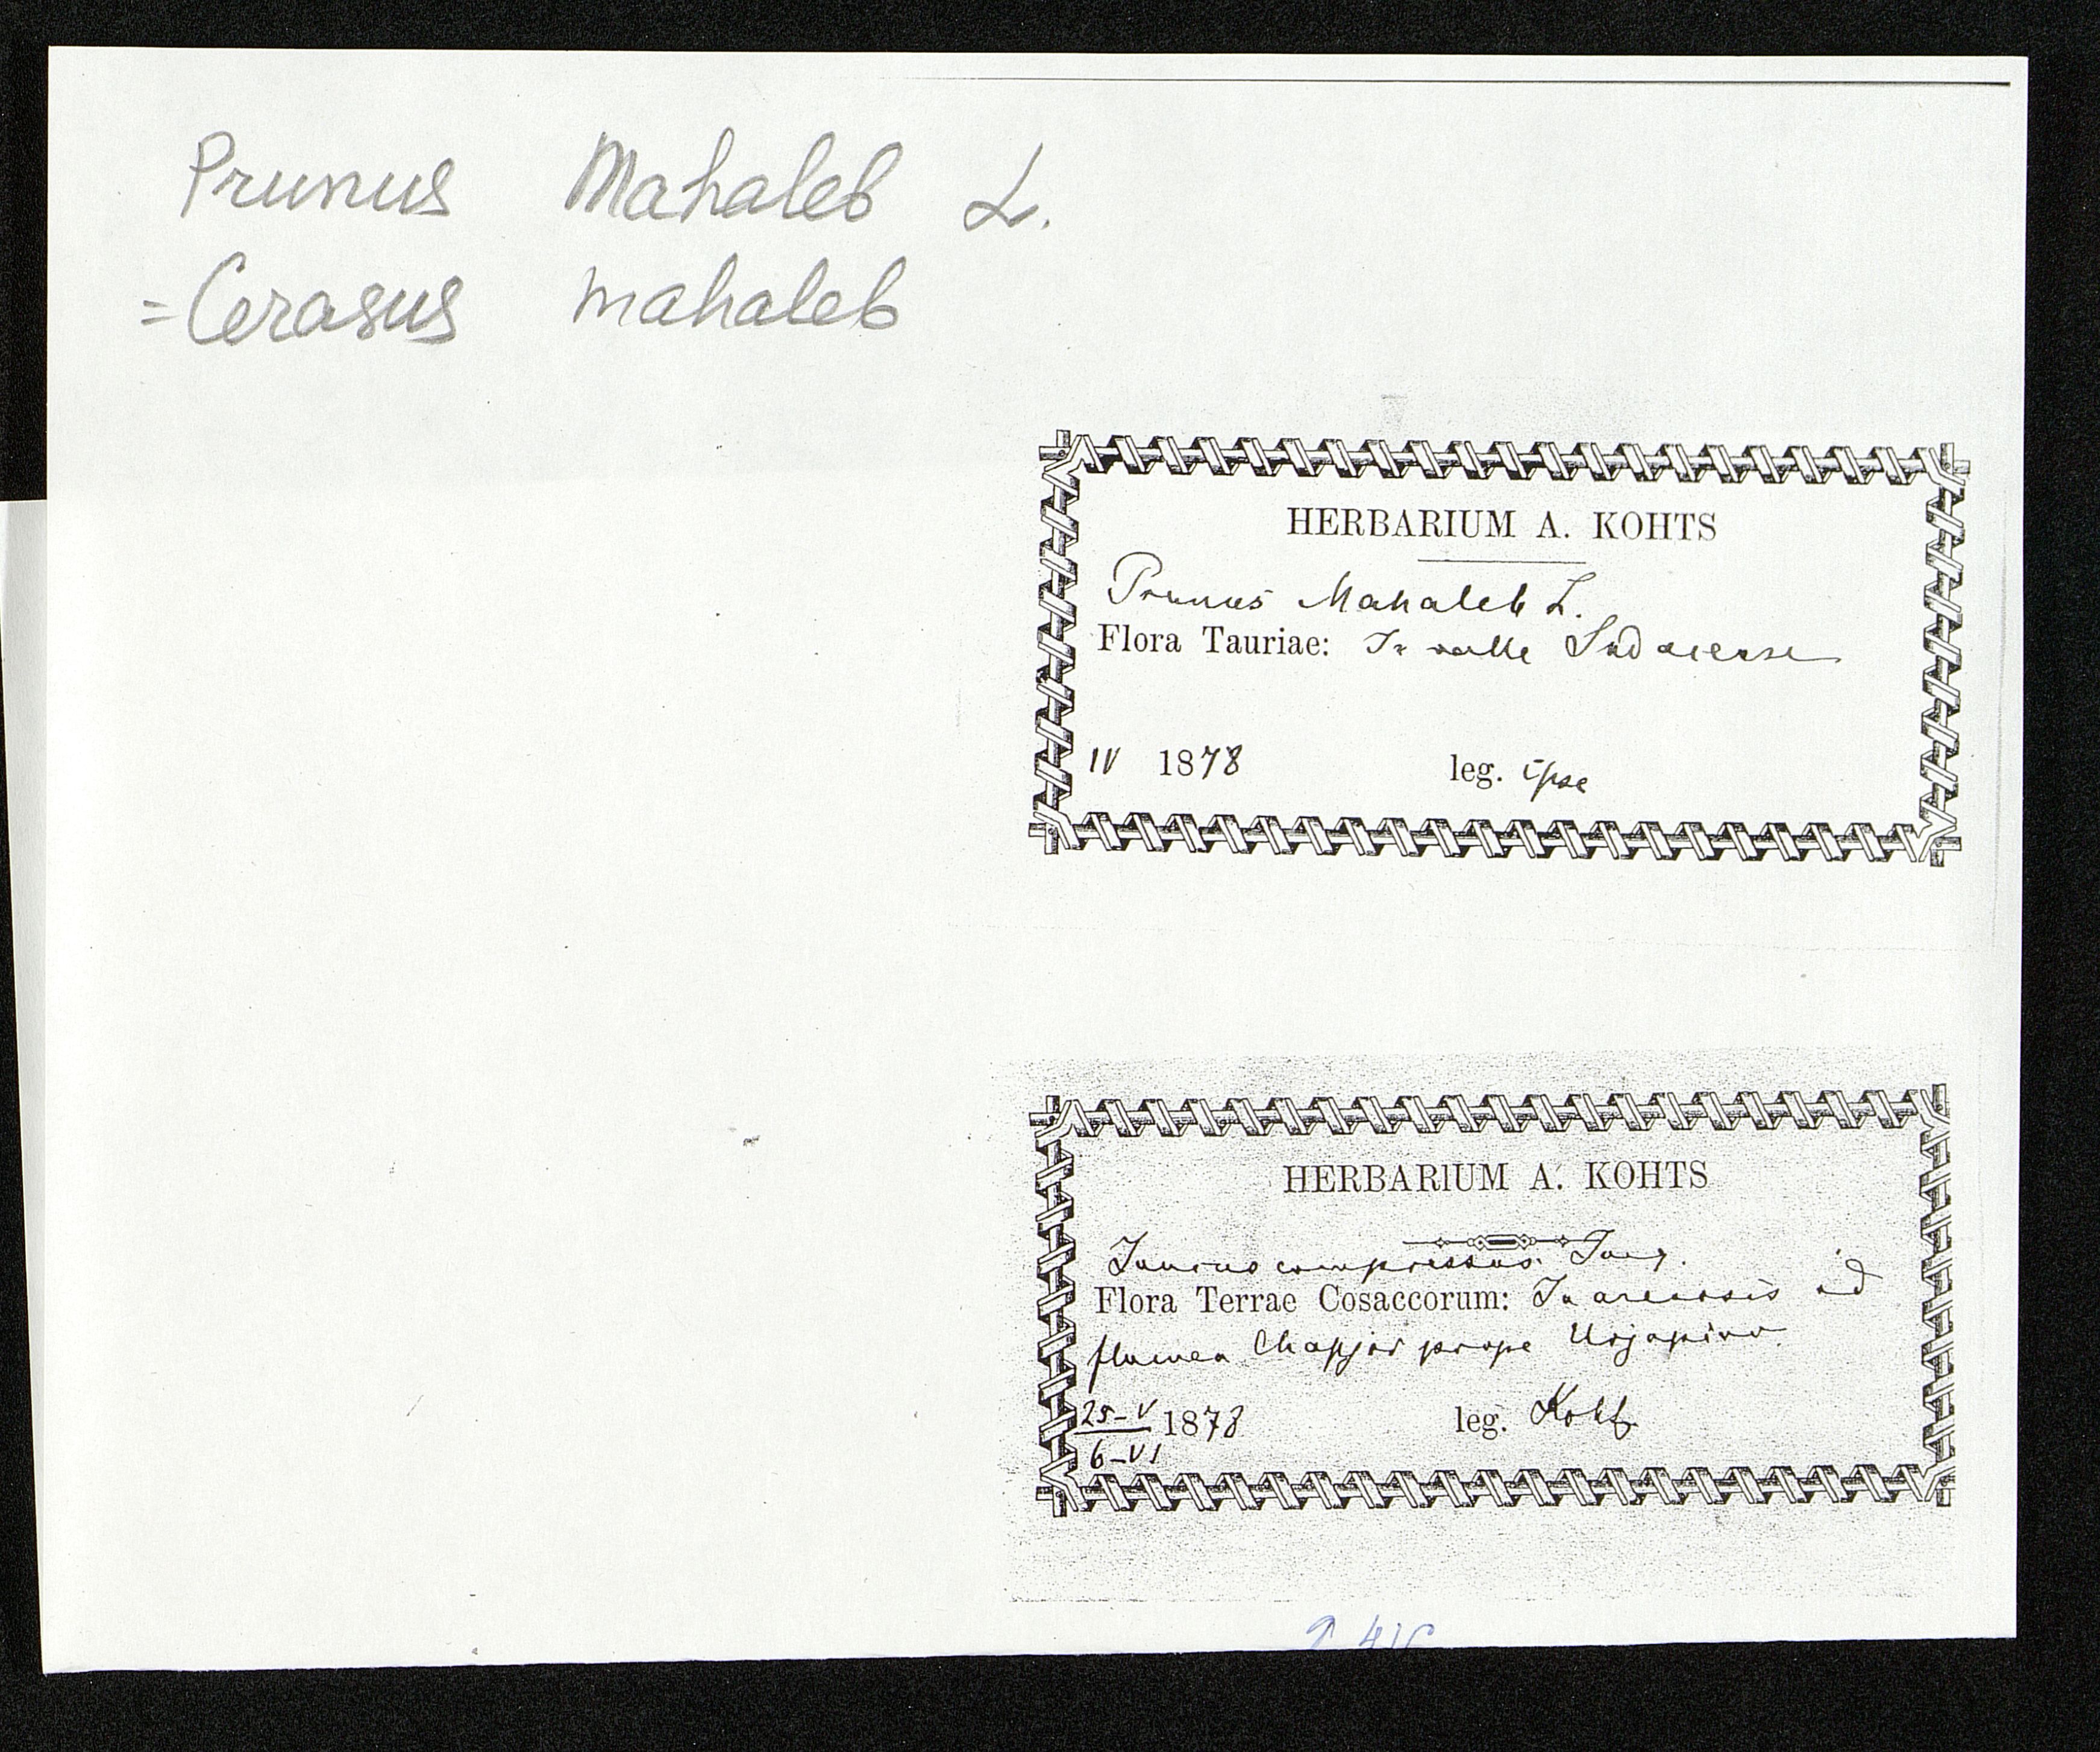 Prunus Mahaleb L.
= Cerasus mahaleb
HERBARIUM A. KOHTS
Prunus Mahaleb L.
Flora Tauriae: In valle Sudacensi
IV 1878 leg. ipse
HERBARIUM A. KOHTS
Juncus compressus Jacq.
Flora Terrae Cosaccorum: In arenosis ad
flumen Chapjor prope Urjapino
25-V
6-VI
1878 leg. Kohts